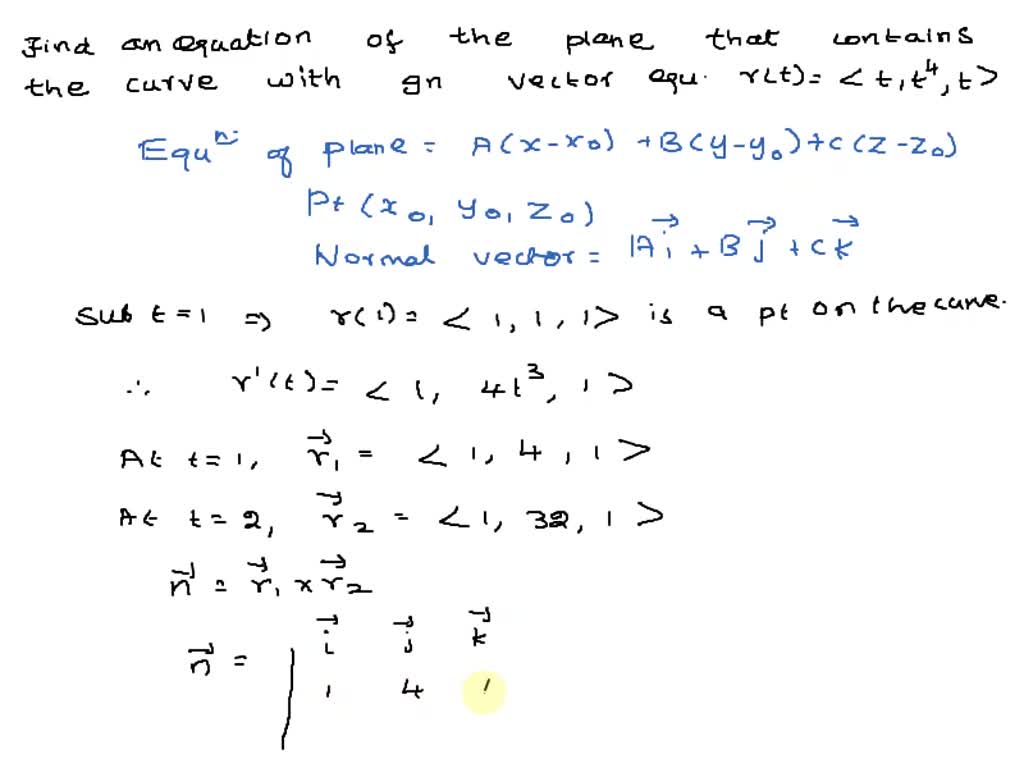 Find an equation of the plane that contains
the curve with gn vector equ. r(t) = < t, t⁴, t >
Equⁿ. of plane = A(x-x₀) + B(y-y₀) + C(z-z₀)
Pt (x₀, y₀, z₀)
Normal vector = Ai⃗ + Bj⃗ + Ck⃗
Sub t = 1 ⇒ r(1) = < 1, 1, 1 > is a pt on the curve.
∴ r'(t) = < 1, 4t³, 1 >
At t = 1, r⃗₁ = < 1, 4, 1 >
At t = 2, r⃗₂ = < 1, 32, 1 >
n⃗ = r⃗₁ × r⃗₂
n⃗ = | i⃗ j⃗ k⃗
1 4 1